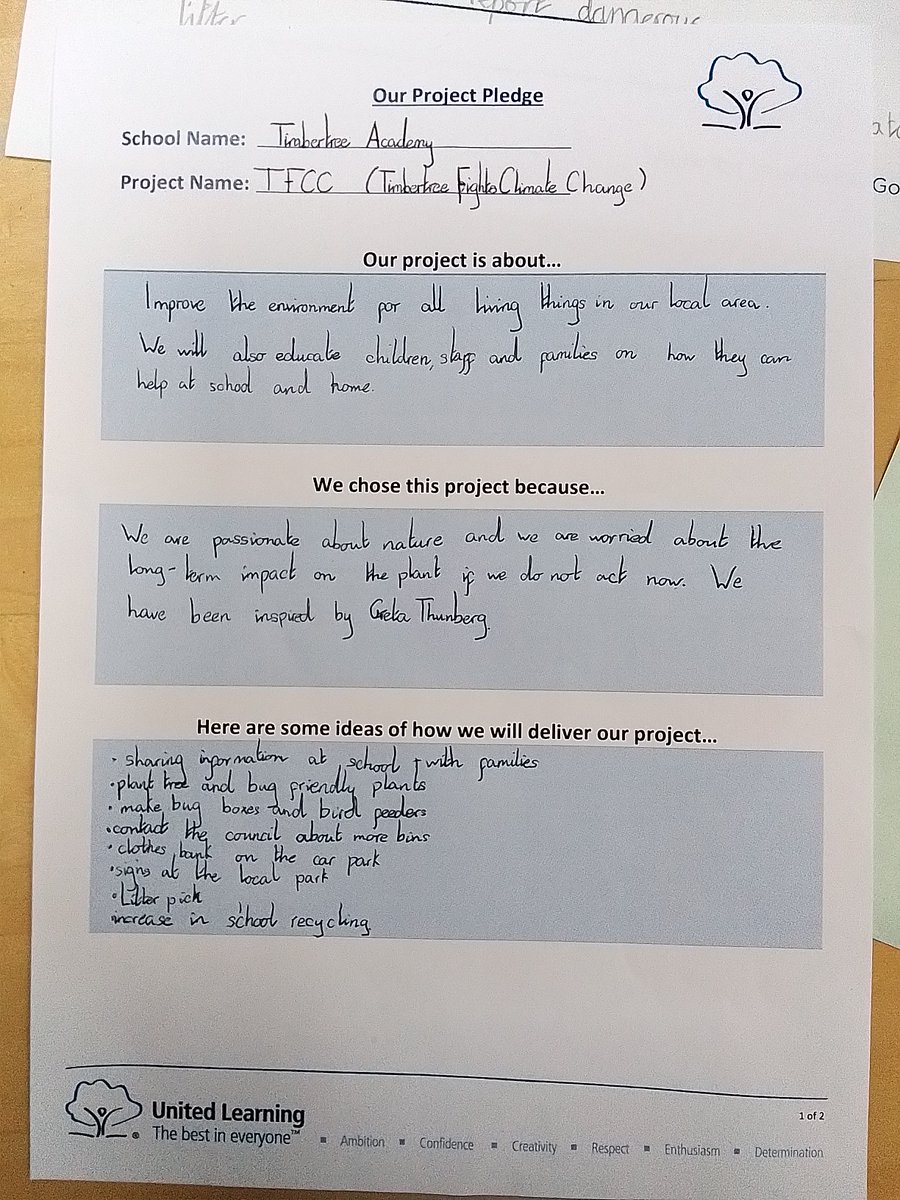 litter
report dangerous
Our Project Pledge
School Name: Timbertree Academy
Project Name: TFCC (Timbertree Fights Climate Change)
Go
Our project is about...
Improve the environment for all living things in our local area.
We will also educate children, staff and families on how they can
help at school and home.
We chose this project because...
We are passionate about nature and we are worried about the
long-term impact on the plant if we do not act now. We
have been inspired by Greta Thunberg.
Here are some ideas of how we will deliver our project...
• sharing information at school + with families
• plant tree and bug friendly plants
• make bug boxes and bird feeders
• contact the council about more bins
• clothes bank on the car park
• signs at the local park
• Litter pick
• increase in school recycling.
1 of 2
United Learning
The best in everyone™
▪ Ambition ▪ Confidence ▪ Creativity ▪ Respect ▪ Enthusiasm ▪ Determination